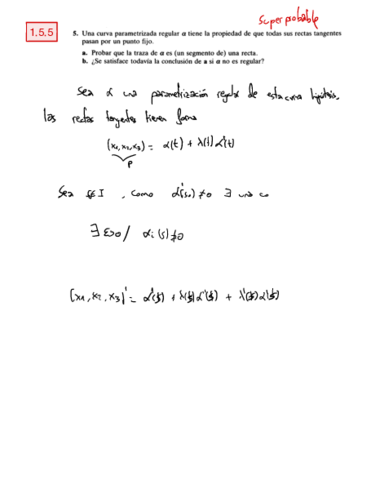 Superprobable
1.5.5
5. Una curva parametrizada regular α tiene la propiedad de que todas sus rectas tangentes
pasan por un punto fijo.
a. Probar que la traza de α es (un segmento de) una recta.
b. ¿Se satisface todavía la conclusión de a si α no es regular?
Sea α una parametrización regular de esta curva hipótesis,
las rectas tangentes tienen forma
(x₁,x₂,x₃) = α(t) + λ(t)α'(t)
P
Sea s∈I, como α'(s₀)≠0 ∃ una co
∃ε>0/ αᵢ(s)≠0
(x₁,x₂,x₃)' = α'(s) + λ(s)α''(s) + λ'(s)α'(s)